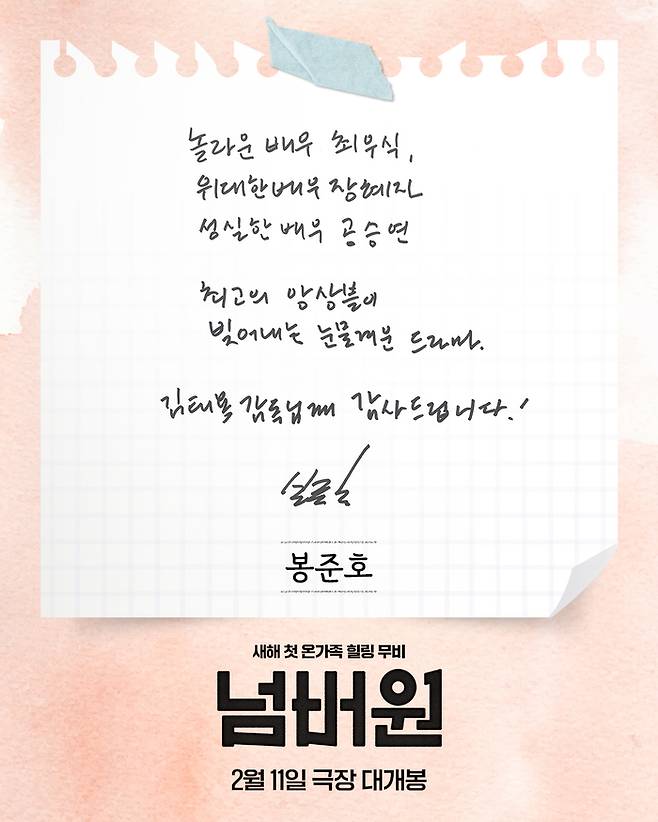 놀라운 배우 최우식,
위대한 배우 장혜진
성실한 배우 공승연
최고의 앙상블이
빚어내는 눈물겨운 드라마.
김태용 감독님께 감사드립니다!
봉준호
새해 첫 온가족 힐링 무비
넘버원
2월 11일 극장 대개봉